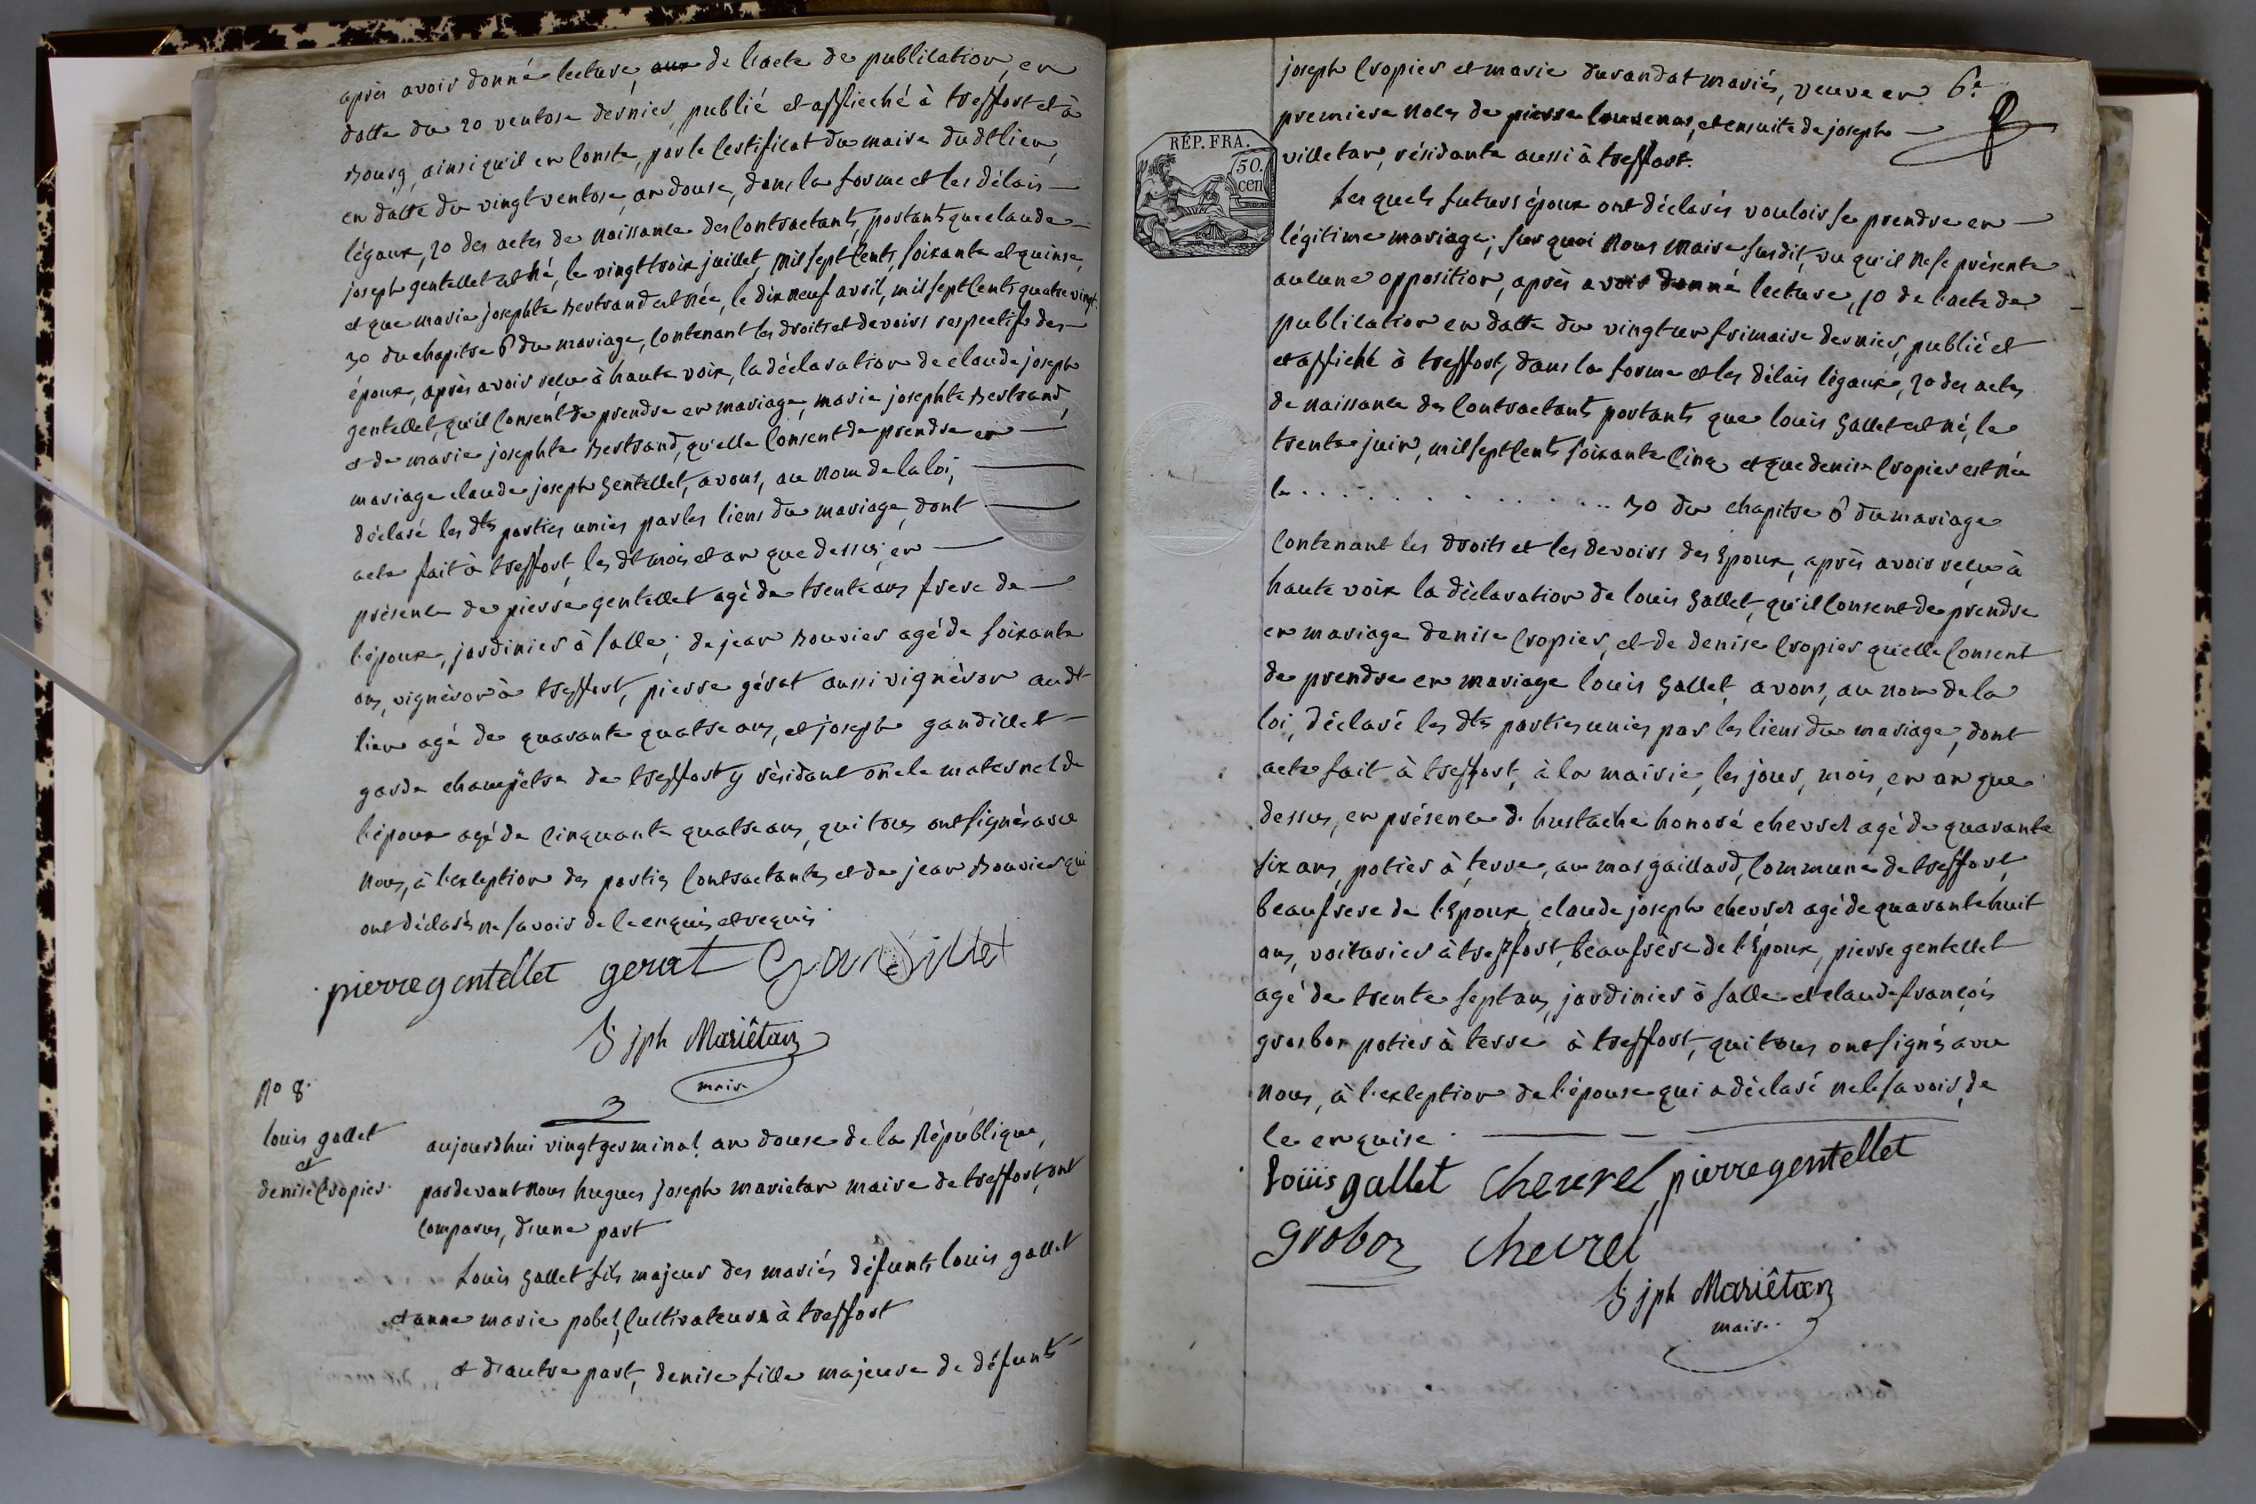 après avoir donné lecture, aux de l'acte de publication, en
datte du 20 ventose dernier, publié et affieché à treffort et à
Bourg, ainsi qu'il en conste, par le certificat du maire dudt lieu,
en datte du vingt ventose, an douse, dans la forme et les délais
légaux, 20 des actes de naissance des contractants, portants que claude
joseph gentellet est né, le vingt trois juillet, mil sept cents, soixante et quinse,
et que marie josephte Bertrand est née, le dix neuf avril, mil sept cents quatre vingt.
30 du chapitre 6 du mariage, contenant les droits et devoirs respectifs des
époux, après avoir reçu à haute voix, la déclaration de claude joseph
gentellet, qu'il consent de prendre en mariage, marie josephte Bertrand,
et de marie josephte Bertrand, qu'elle consent de prendre en
mariage claude joseph gentellet, avons, au nom de la loi,
déclaré les dtes parties unies par les liens du mariage, dont
acte fait à treffort, les dt mois et an que dessus, en
présence de pierre gentellet agé de trente ans frere de
l'époux, jardinier à salle; de jean Bouvier agé de soixante
ans, vigneron à treffort, pierre gérat aussi vigneron audt
lieu agé de quarante quatre ans, et joseph gandillet
garde champêtre de treffort y résidant oncle maternel de
l'époux agé de cinquante quatre ans, qui tous ont signés avec
nous, à l'exception des parties contractantes et de jean Bouvier qui
ont déclarés ne savoir de ce enquis et requis.
pierre gentellet gerat Gandillet
h jph Mariêtan
maire
No 8.
louis gallet
et
denise Cropier.
aujourdhui vingt germinal an douse de la République,
pardevant nous hugues joseph marietan maire de treffort, ont
comparus, d'une part
Louis gallet fils majeur des mariés défunts louis gallet
et anne marie pobel, cultivateurs à treffort
et d'autre part, denise fille majeure de défunts
6e
joseph Cropier et marie durandat mariés, veuve en
premiere noces de pierre Couvenas, et ensuite de joseph
villetan, résidante aussi à treffort.
RÉP. FRA.
50.
cen
Les quels futurs époux ont déclarés vouloir se prendre en
légitime mariage; sur quoi nous maire susdit, vu qu'il ne se présente
aucune opposition, après avoir donné lecture, 10 de l'acte de
publication en datte du vingt un frimaire dernier, publié et
et affiché à treffort, dans la forme et les délais légaux, 20 des actes
de naissance des contractants portants que louis gallet est né, le
trente juin, mil sept cents soixante cinq et que denise Cropier est née
le . . . . . . . . . . . . . . . 30 du chapitre 6 du mariage
contenant les droits et les devoirs des Epoux, après avoir reçu à
haute voix la déclaration de louis gallet, qu'il consent de prendre
en mariage denise Cropier, et de denise Cropier qu'elle consent
de prendre en mariage louis gallet, avons, au nom de la
loi, déclaré les dtes parties unies par les liens du mariage, dont
acte fait à treffort, à la mairie, les jour, mois, en an que
dessus, en présence d'hustache honoré chevrel agé de quarante
six ans, potier à terre, au mas gaillard, commune de treffort,
beaufrere de l'Epoux, claude joseph chevrel agé de quarante huit
ans, voiturier à treffort, beaufrère de l'Epoux, pierre gentellet
agé de trente sept ans, jardinier à salle et claude françois
grosbon potier à terre à treffort, qui tous ont signés avec
nous, à l'exception de l'épouse qui a déclaré ne le savoir, de
ce enquise.
Loüis gallet chevrel pierre gentellet
grobon chevrel
h jph Mariêtan
maire.